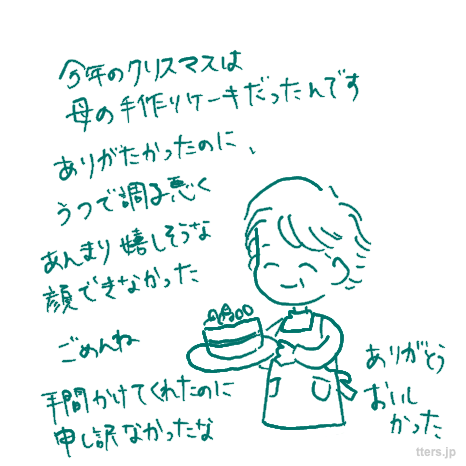 今年のクリスマスは
母の手作りケーキだったんです
ありがたかったのに、
うつで調子悪く
あんまり嬉しそうな
顔できなかった
ごめんね
手間かけてくれたのに
申し訳なかったな
ありがとう
おいし
かった
tters.jp